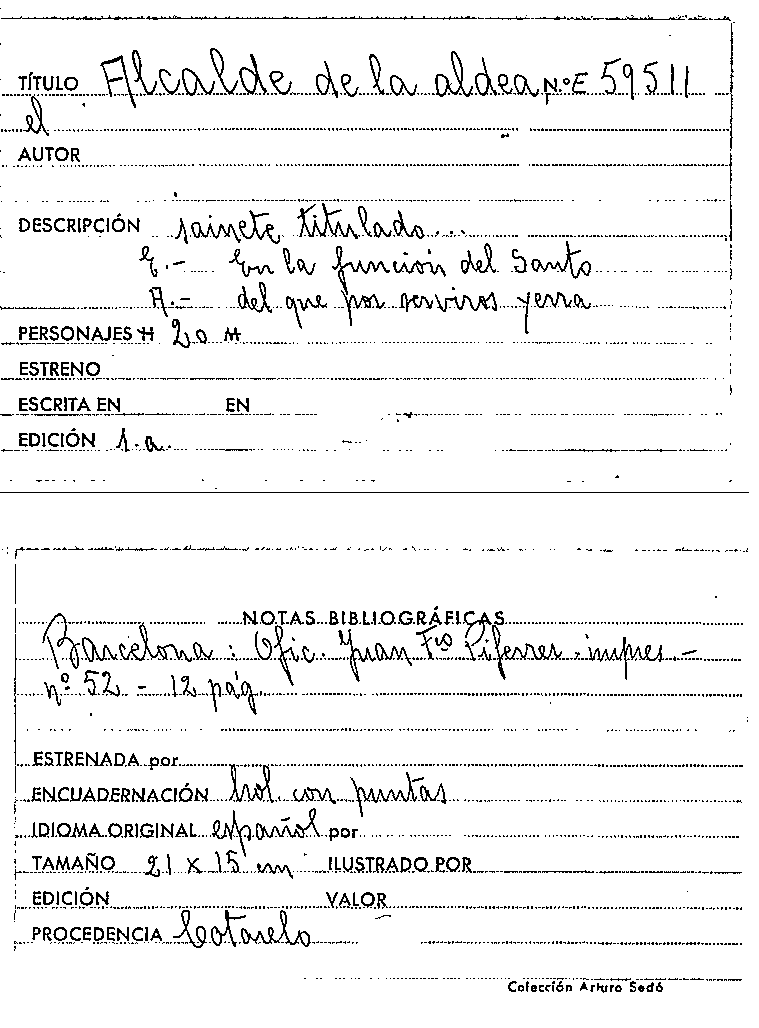 TÍTULO Alcalde de la aldea N.º E 59511
el
AUTOR
DESCRIPCIÓN sainete titulado...
E.- En la función del Santo
A.- del que por serviros yerra
PERSONAJES H 20 M
ESTRENO
ESCRITA EN EN
EDICIÓN s.a.
NOTAS BIBLIOGRÁFICAS
Barcelona: Ofic. Juan Fco Piferrer-impres.-
nº 52 - 12 pág.
ESTRENADA por
ENCUADERNACIÓN hol. con puntas
IDIOMA ORIGINAL español por
TAMAÑO 21 x 15 cm ILUSTRADO POR
EDICIÓN VALOR
PROCEDENCIA Cotarelo
Colección Arturo Sedó